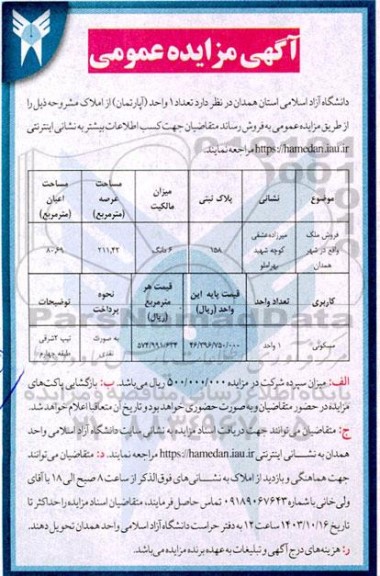 آگهی مزایده عمومی
دانشگاه آزاد اسلامی استان همدان در نظر دارد تعداد ۱ واحد (آپارتمان) از املاک مشروحه ذیل را
از طریق مزایده عمومی به فروش رساند متقاضیان جهت کسب اطلاعات بیشتر به نشانی اینترنتی
https://hamedan.iau.ir مراجعه نمایند.
موضوع نشانی پلاک ثبتی میزان مالکیت مساحت عرصه (مترمربع) مساحت اعیان (مترمربع)
فروش ملک واقع در شهر همدان میرزاده عشقی کوچه شهید بهراملو ۱۵۸ ۶ دانگ ۲۱۱,۴۲ ۸۰,۶۹
کاربری تعداد واحد قیمت پایه این واحد (ریال) قیمت هر مترمربع (ریال) نحوه پرداخت توضیحات
مسکونی ۱ واحد ۴۶/۳۹۶/۷۵۰/۰۰۰ ۵۷۴/۹۹۱/۶۳۴ به صورت نقدی تیپ ۲ شرقی طبقه چهارم
الف: میزان سپرده شرکت در مزایده ۵۰۰/۰۰۰/۰۰۰ ریال می‌باشد. ب: بازگشایی پاکت‌های
مزایده در حضور متقاضیان و به صورت حضوری خواهد بود و تاریخ آن متعاقبا اعلام خواهد شد.
ج: متقاضیان می‌توانند جهت دریافت اسناد مزایده به نشانی سایت دانشگاه آزاد اسلامی واحد
همدان به نشانی اینترنتی https://hamedan.iau.ir مراجعه نمایند. د: متقاضیان می‌توانند
جهت هماهنگی و بازدید از املاک به نشانی‌های فوق‌الذکر از ساعت ۸ صبح الی ۱۸ با آقای
ولی خانی با شماره ۰۹۱۸۹۰۶۷۶۴۳ تماس حاصل فرمایند، متقاضیان اسناد مزایده را حداکثر تا
تاریخ ۱۴۰۳/۱۰/۱۶ ساعت ۱۲ به دفتر حراست دانشگاه آزاد اسلامی واحد همدان تحویل دهند.
ر: هزینه‌های درج آگهی و تبلیغات به عهده برنده مزایده می‌باشد.